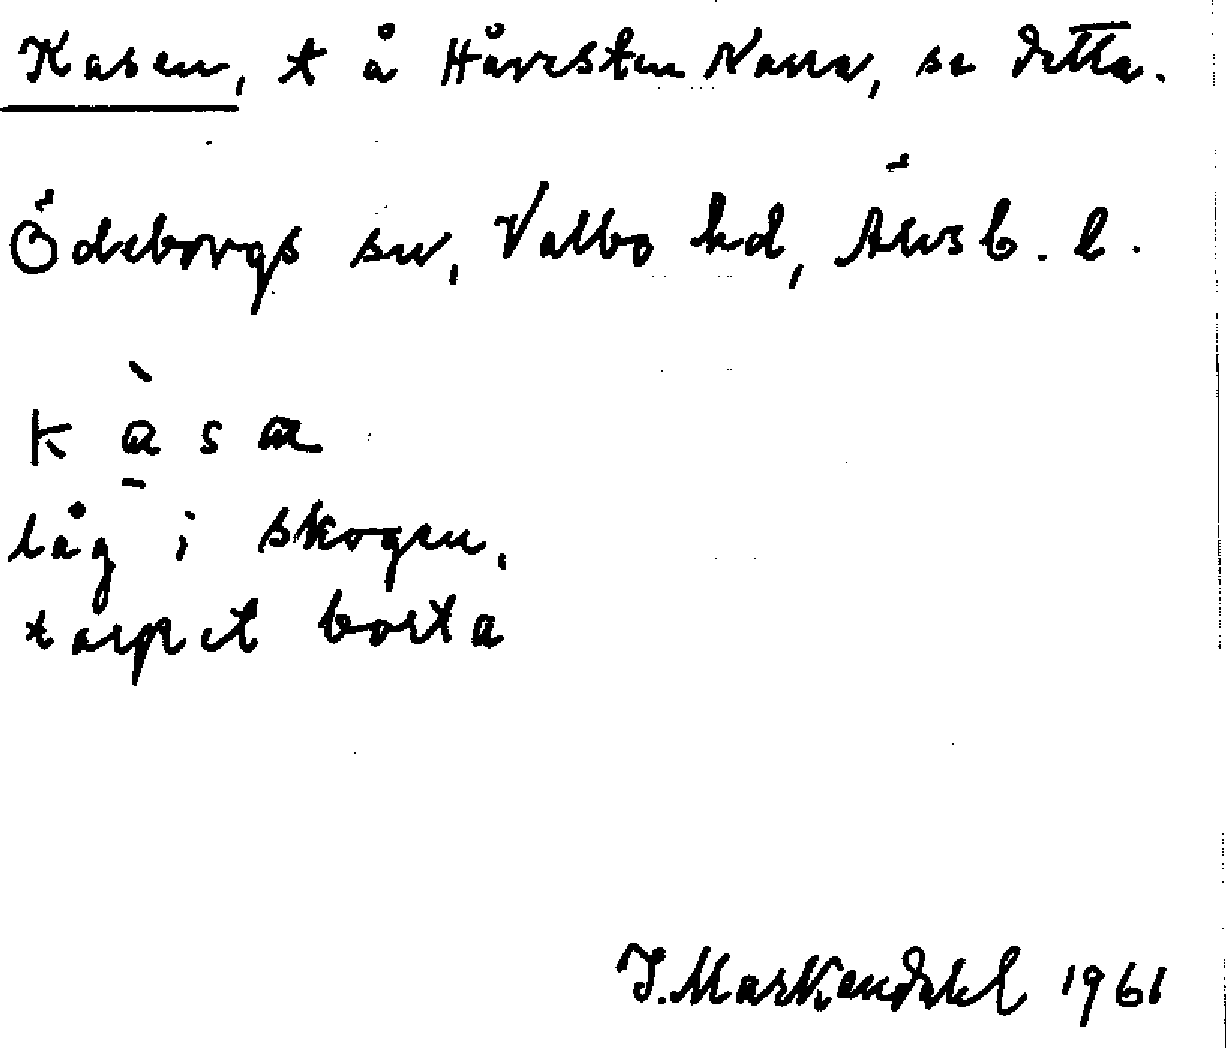 Kasen, t å Håvesten Norra, se detta.
Ödeborgs sn, Valbo hd, Älvsb. l.
k à s a
låg i skogen,
torpet borta
J. Markendahl 1961